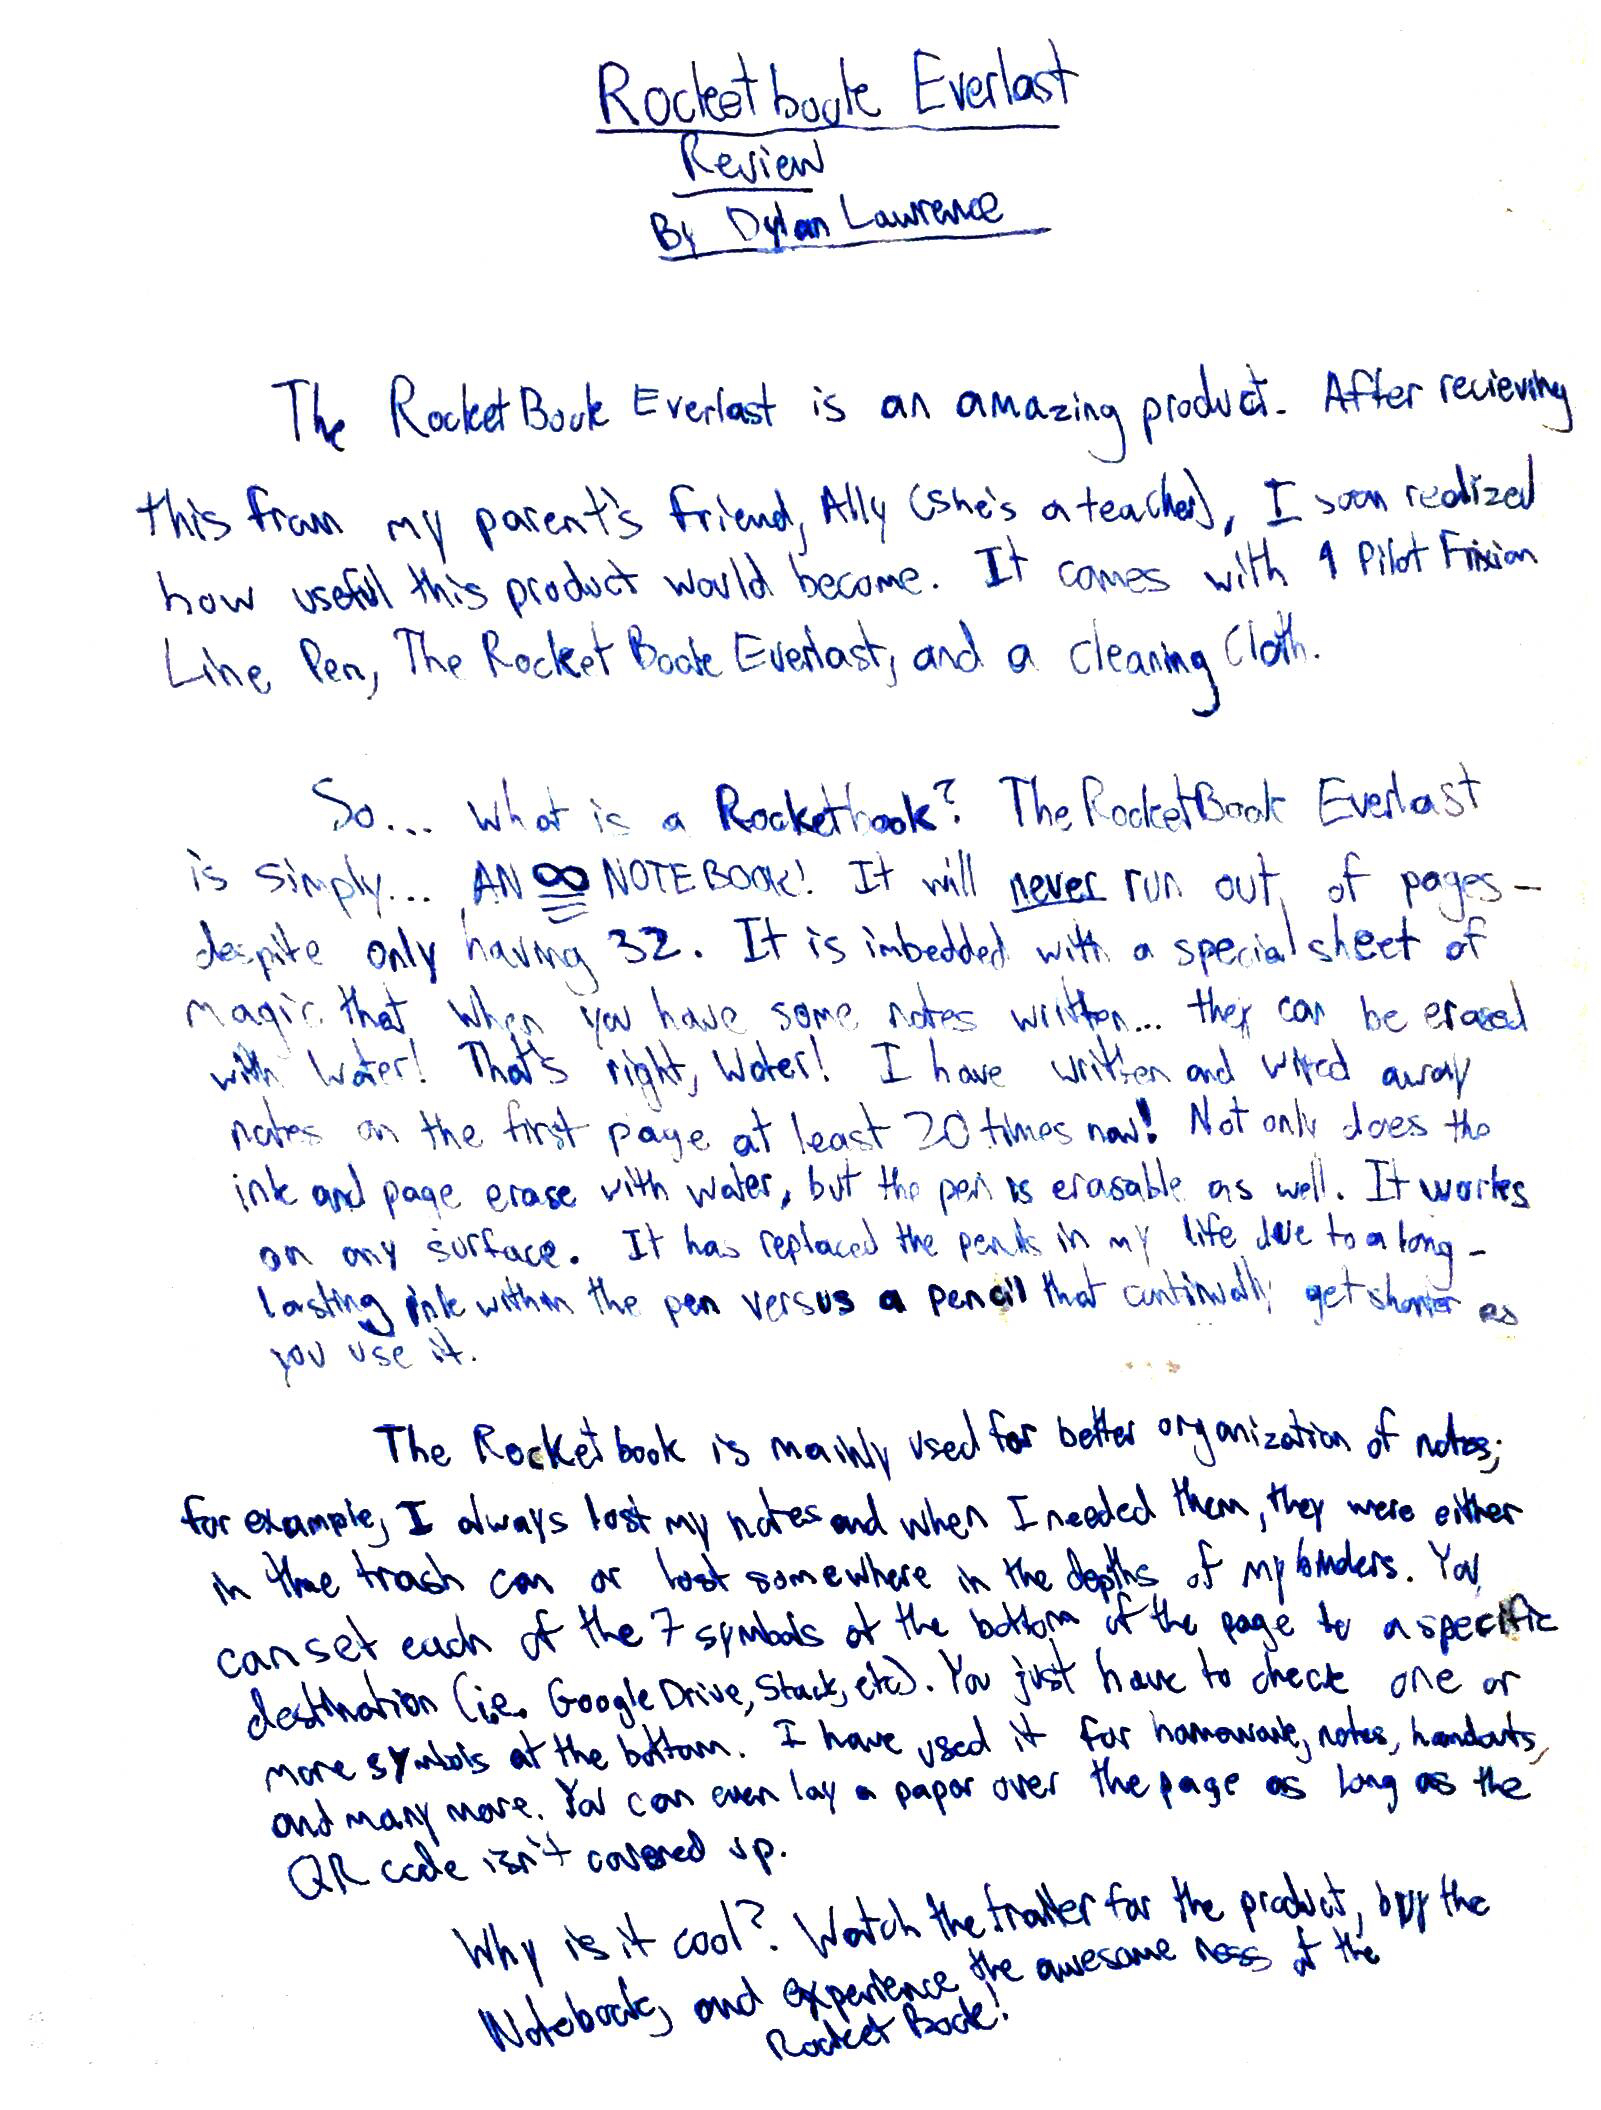 Rocketbook Everlast
Review
By Dylan Lawrence
The RocketBook Everlast is an amazing product. After recieving
this from my parent's friend, Ally (she's a teacher), I soon realized
how useful this product would become. It comes with 1 Pilot Frixion
Line Pen, The Rocket Book Everlast, and a cleaning Cloth.
So... what is a Rocketbook? The RocketBook Everlast
is simply... AN ∞ NOTEBOOK! It will never run out of pages -
despite only having 32. It is imbedded with a special sheet of
magic that when you have some notes written... they can be erased
with water! That's right, Water! I have written and wiped away
notes on the first page at least 20 times now! Not only does the
ink and page erase with water, but the pen is erasable as well. It works
on any surface. It has replaced the pencils in my life due to a long-
lasting ink within the pen versus a pencil that continually get shorter as
you use it.
The Rocketbook is mainly used for better organization of notes;
for example, I always lost my notes and when I needed them, they were either
in the trash can or lost somewhere in the depths of my binders. You
can set each of the 7 symbols at the bottom of the page to a specific
destination (i.e. Google Drive, Slack, etc). You just have to check one or
more symbols at the bottom. I have used it for homework, notes, handouts,
and many more. You can even lay a paper over the page as long as the
QR code isn't covered up.
Why is it cool? Watch the trailer for the product, buy the
Notebook, and experience the awesome ness of the
Rocket Book!